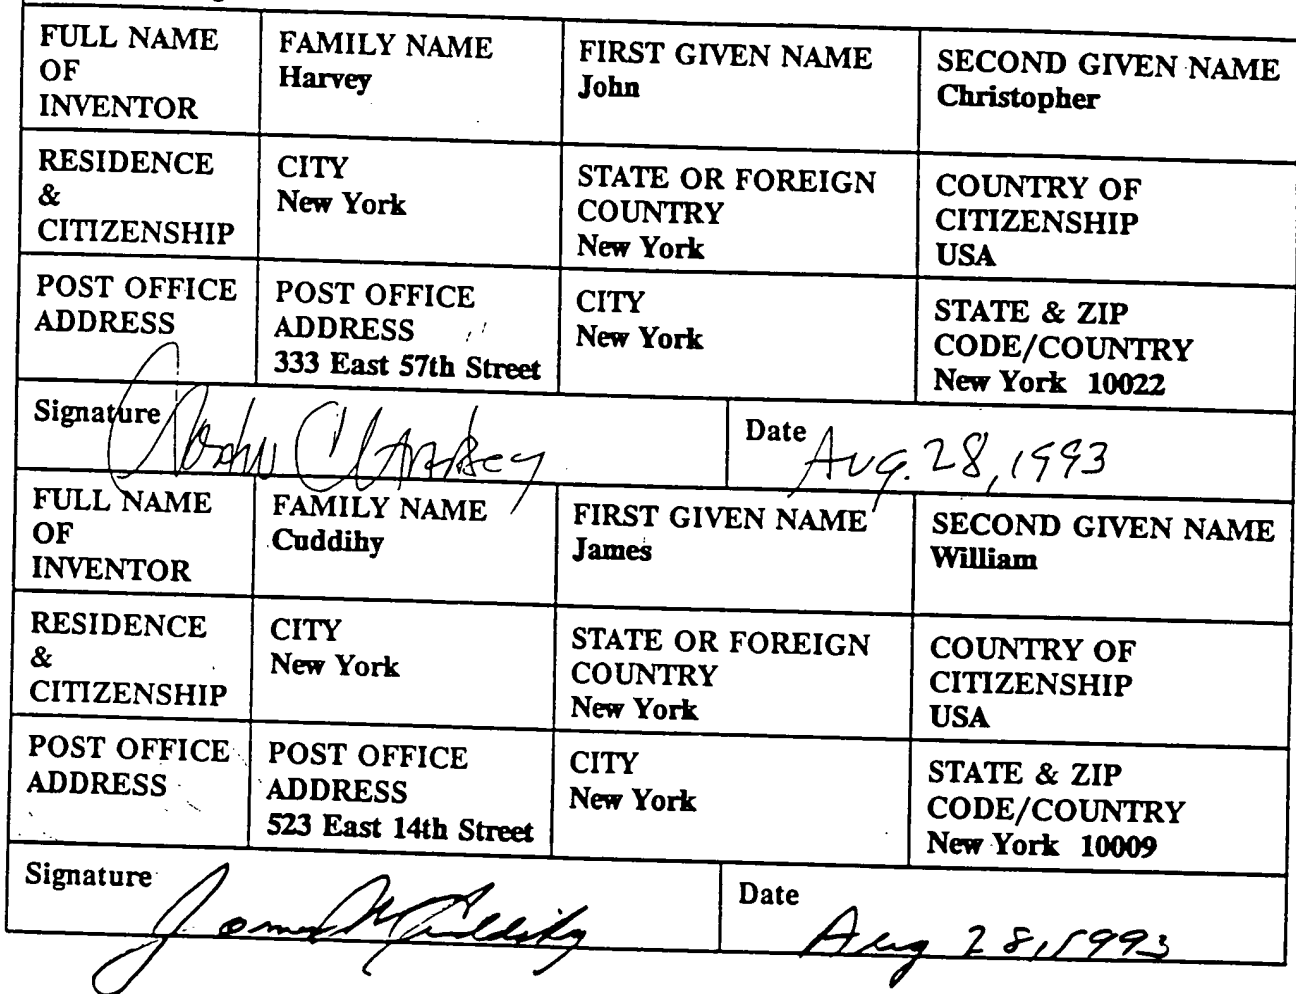 FULL NAME OF INVENTOR
FAMILY NAME
Harvey
FIRST GIVEN NAME
John
SECOND GIVEN NAME
Christopher
RESIDENCE & CITIZENSHIP
CITY
New York
STATE OR FOREIGN COUNTRY
New York
COUNTRY OF CITIZENSHIP
USA
POST OFFICE ADDRESS
POST OFFICE ADDRESS
333 East 57th Street
CITY
New York
STATE & ZIP CODE/COUNTRY
New York 10022
Signature John C Harvey
Date Aug. 28, 1993
FULL NAME OF INVENTOR
FAMILY NAME
Cuddihy
FIRST GIVEN NAME
James
SECOND GIVEN NAME
William
RESIDENCE & CITIZENSHIP
CITY
New York
STATE OR FOREIGN COUNTRY
New York
COUNTRY OF CITIZENSHIP
USA
POST OFFICE ADDRESS
POST OFFICE ADDRESS
523 East 14th Street
CITY
New York
STATE & ZIP CODE/COUNTRY
New York 10009
Signature James W Cuddihy
Date Aug 28, 1993